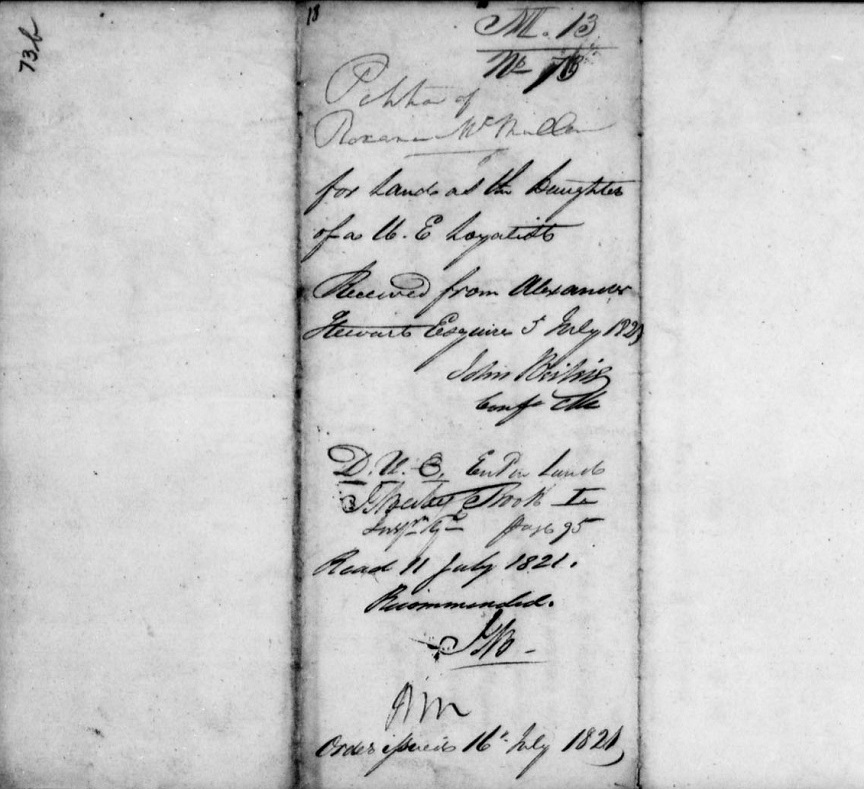 73b
18
M. 13
No 73
Petition of
Roxana McMullen
for Lands as the Daughter
of a U. E Loyalist
Received from Alexander
Stewart Esquire 5 July 1821
John Beikie
Conf Clk
D. U. E. Ent in Land
Book I
Page 95
Read 11 July 1821.
Recommended.
Order issued 16 July 1821